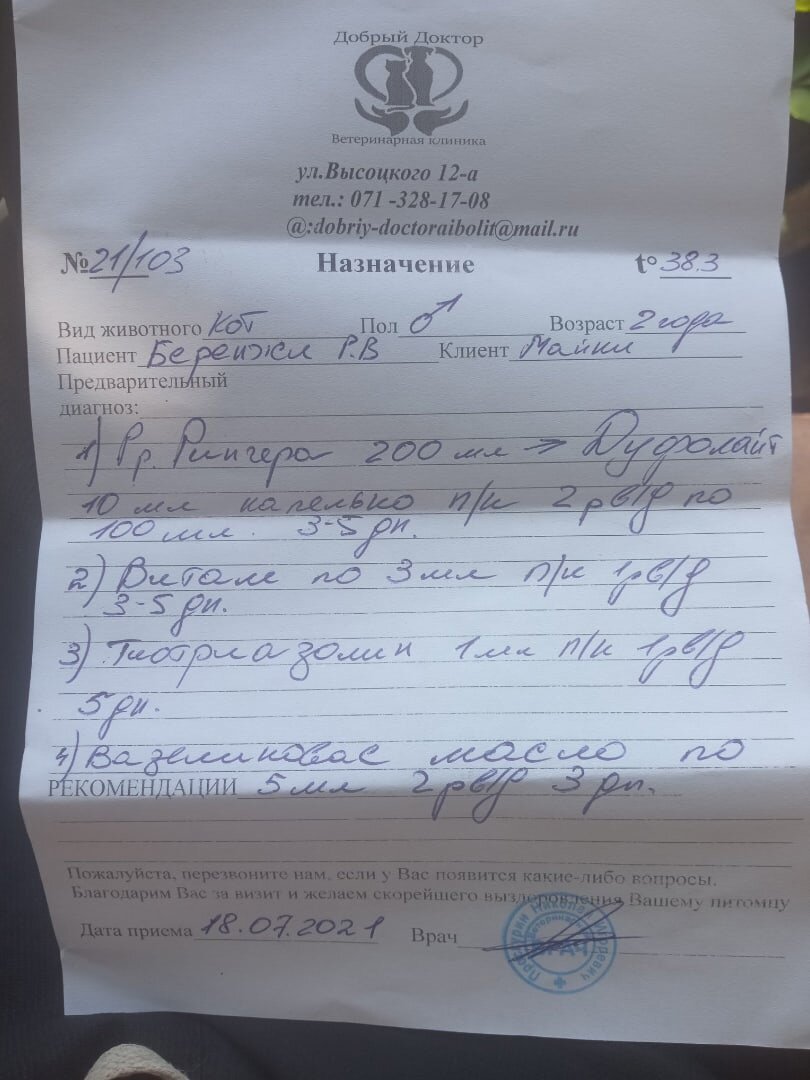 Добрый Доктор
Ветеринарная клиника
ул.Высоцкого 12-а
тел.: 071 -328-17-08
@:dobriy-doctoraibolit@mail.ru
№ 21/103 Назначение t° 38.3
Вид животного Кот Пол ♂ Возраст 2 года
Пациент Р.В Клиент Майкл
Предварительный
диагноз:
1) Рр. Рингера 200 мл → Дуфалайт
10 мл капельно п/к 2 р в/д по
100 мл. 3-5 дн.
2) Витам по 3 мл п/к 1 р в/д
3-5 дн.
3) Тиотриазолин 1 мл п/к 1 р в/д
5 дн.
4) Вазелиновое масло по
РЕКОМЕНДАЦИИ 5 мл 2 р в/д 3 дн.
Пожалуйста, перезвоните нам, если у Вас появится какие-либо вопросы.
Благодарим Вас за визит и желаем скорейшего выздоровления Вашему питомцу
Дата приема 18.07.2021 Врач